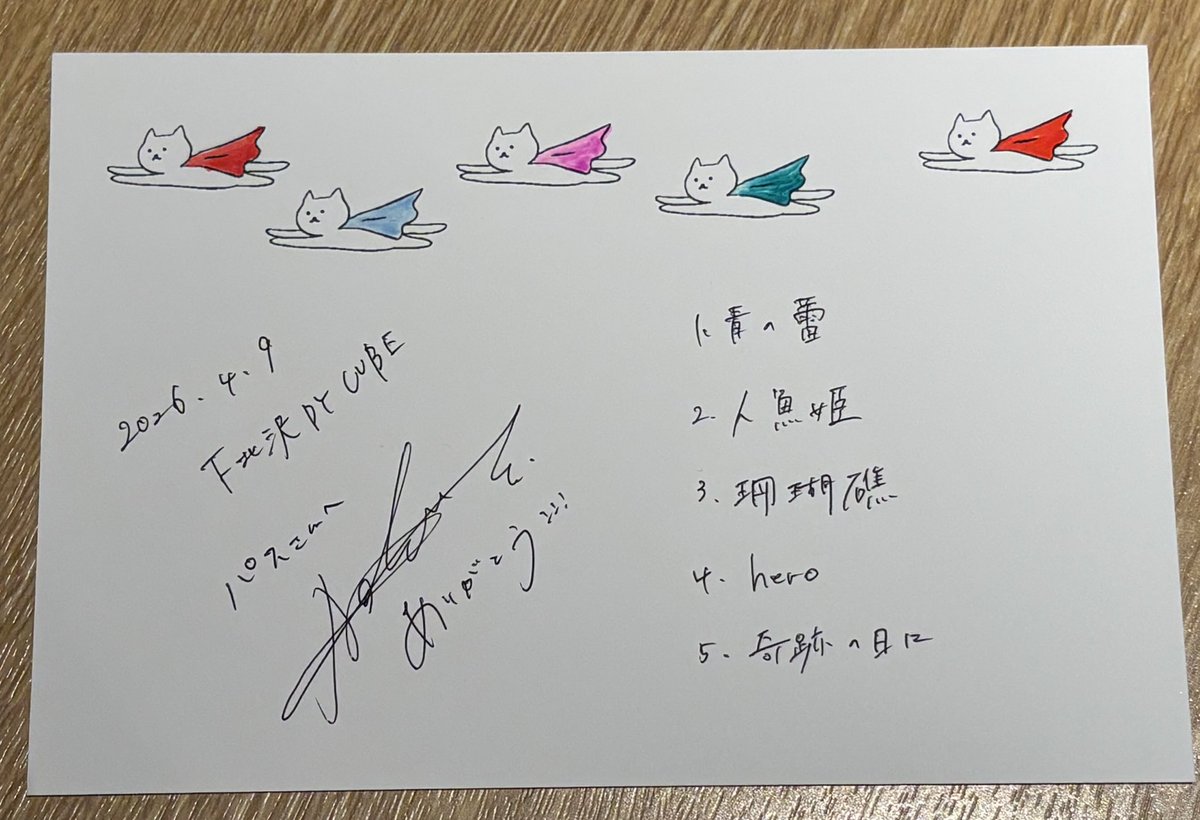 2026.4.9
下北沢 DY CUBE
パスさんへ
ありがとう!!!
1. 青の蕾
2. 人魚姫
3. 珊瑚礁
4. hero
5. 奇跡の日に